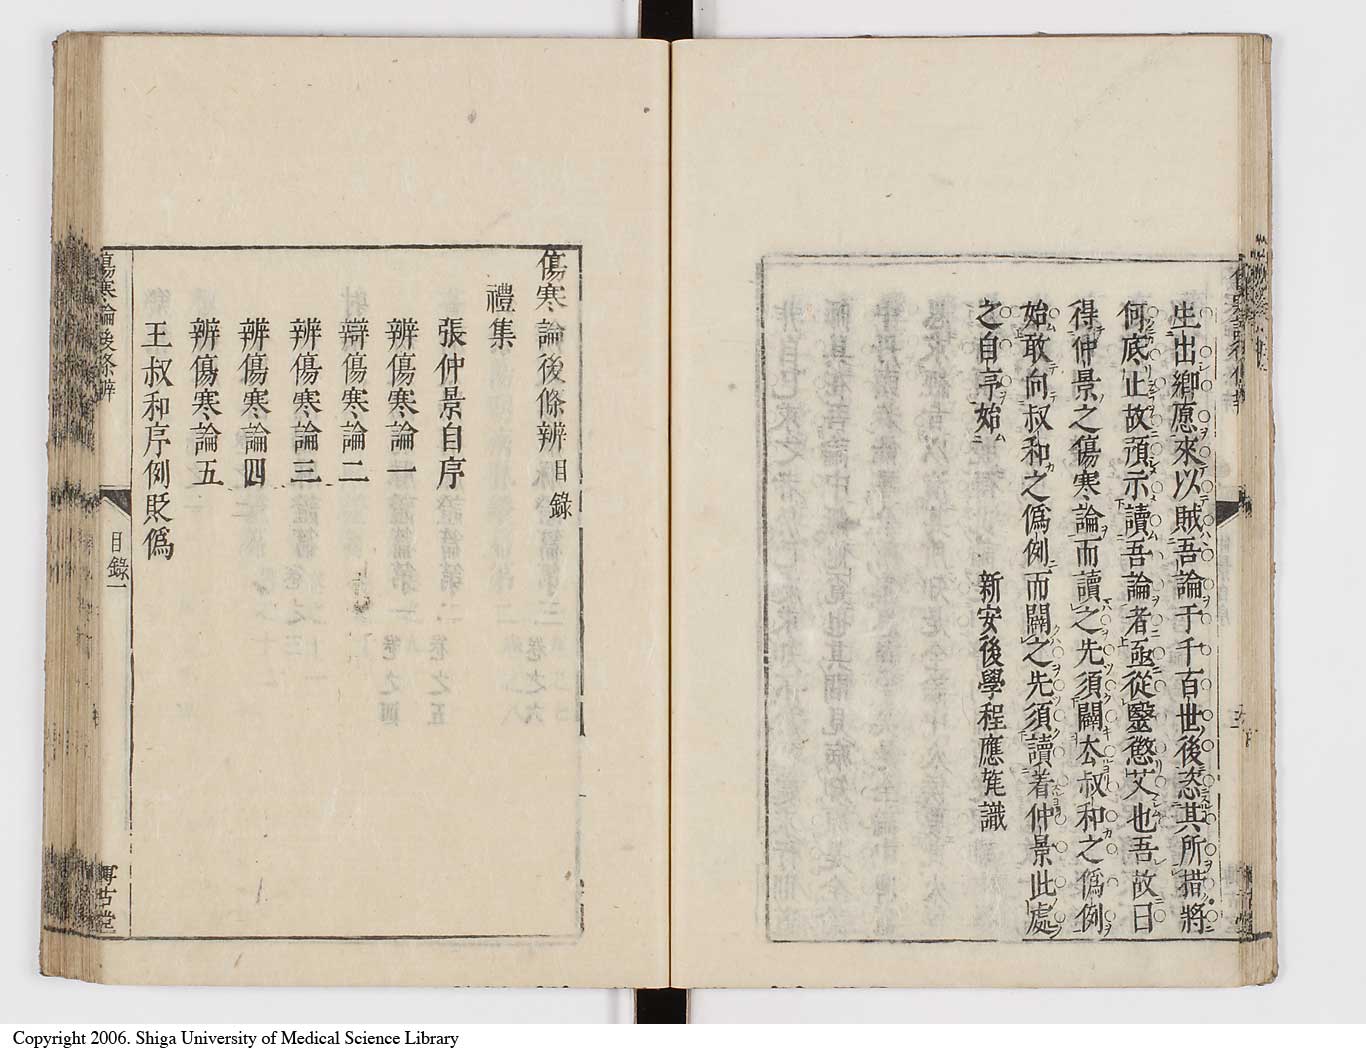 生出鄉愿來以賊吾論于千百世後恣其所措將
何底止故預示讀吾論者亟從鑒懲艾也吾故曰
得仲景之傷寒論而讀之先須闢厺叔和之僞例
始敢向叔和之僞例而闢之先須讀着仲景此處
之自序始
新安後學程應旄識
傷寒論後條辨目錄
禮集
張仲景自序
辨傷寒論一
辯傷寒論二
辨傷寒論三
辨傷寒論四
辨傷寒論五
王叔和序例貶僞
傷寒論後條辨
目錄一
Copyright 2006. Shiga University of Medical Science Library